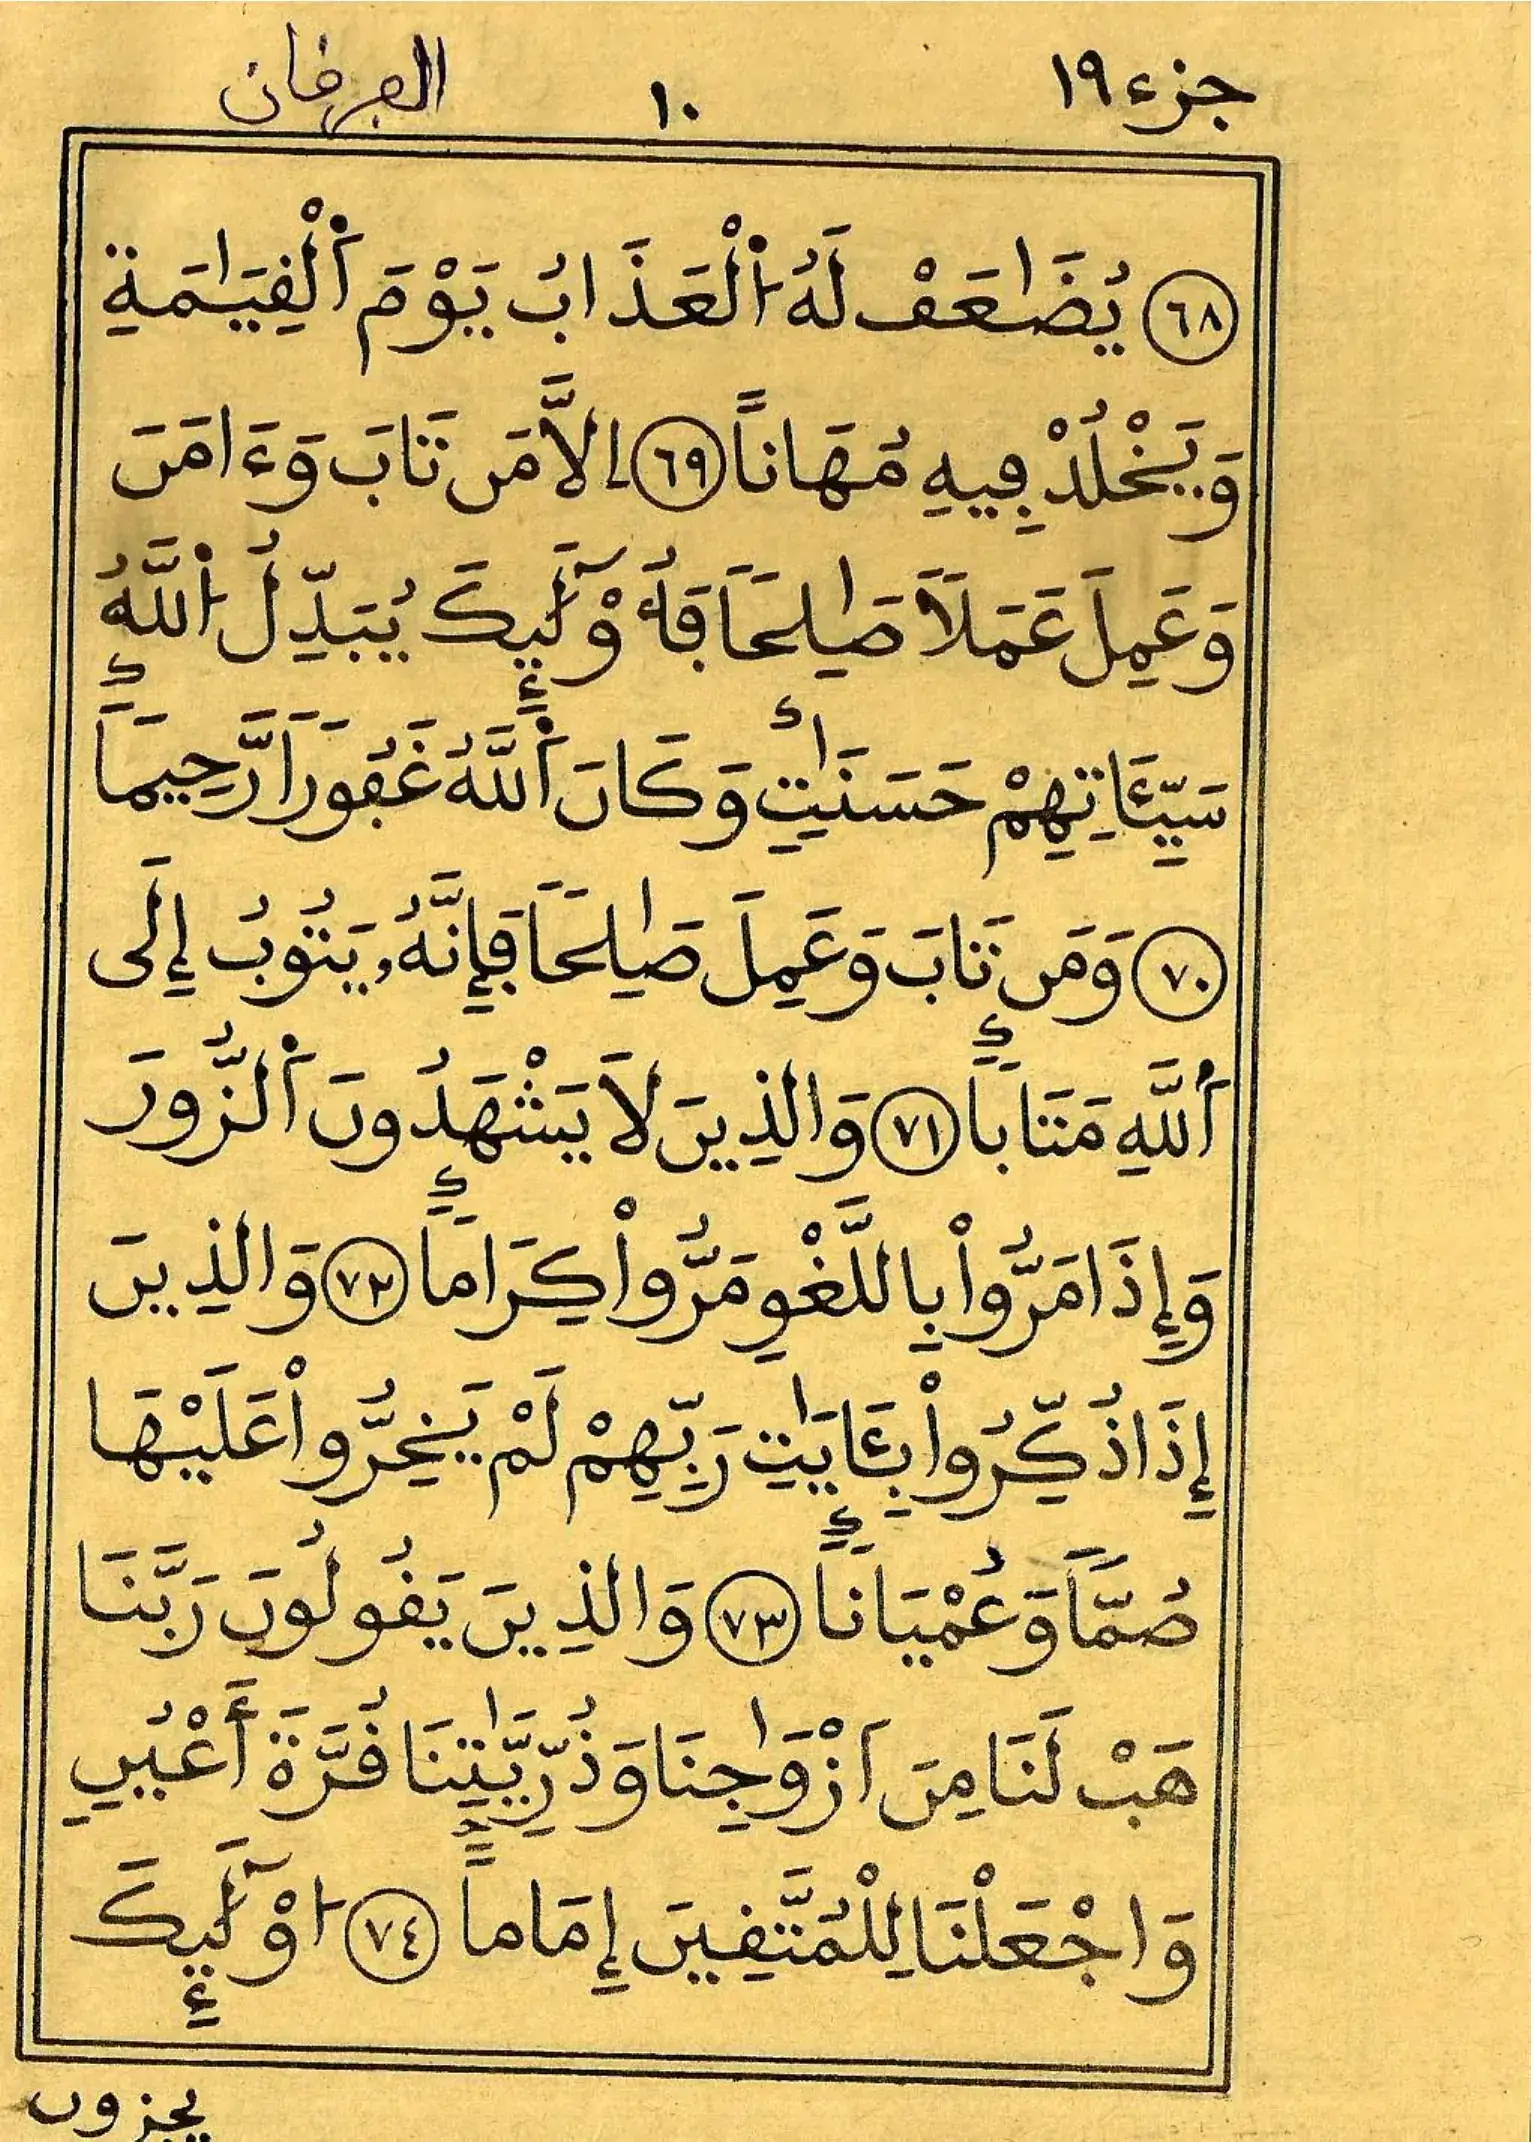 جزء ١٩
١٠
الفرقان
٦٨ يُضَٰعَفْ لَهُ اُ۬لْعَذَابُ يَوْمَ اَ۬لْقِيَٰمَةِ
وَيَخْلُدْ فِيهِ مُهَاناً ٦٩ اِلاَّ مَن تَابَ وَءَامَنَ
وَعَمِلَ عَمَلاَ صَٰلِحاَ فَأُوْلَٰٓئِكَ يُبَدِّلُ اُ۬للَّهُ
سَيِّـَٔاتِهِمْ حَسَنَٰتٍ وَكَانَ اَ۬للَّهُ غَفُوراَ رَّحِيماَ
٧٠ وَمَن تَابَ وَعَمِلَ صَٰلِحاَ فَإِنَّهُۥ يَتُوبُ إِلَى
اَ۬للَّهِ مَتَاباً ٧١ وَالذِينَ لاَ يَشْهَدُونَ اَ۬لزُّورَ
وَإِذَا مَرُّواْ بِاللَّغْوِ مَرُّواْ كِرَاماً ٧٢ وَالذِينَ
إِذَا ذُكِّرُواْ بِـَٔايَٰتِ رَبِّهِمْ لَمْ يَخِرُّواْ عَلَيْهَا
صُمّاَ وَعُمْيَاناً ٧٣ وَالذِينَ يَقُولُونَ رَبَّنَا
هَبْ لَنَا مِنَ اَزْوَٰجِنَا وَذُرِّيَّٰتِنَا قُرَّةَ أَعْيُنٍ
وَاجْعَلْنَا لِلْمُتَّقِينَ إِمَاماً ٧٤ اوْلَٰٓئِكَ
يجزون